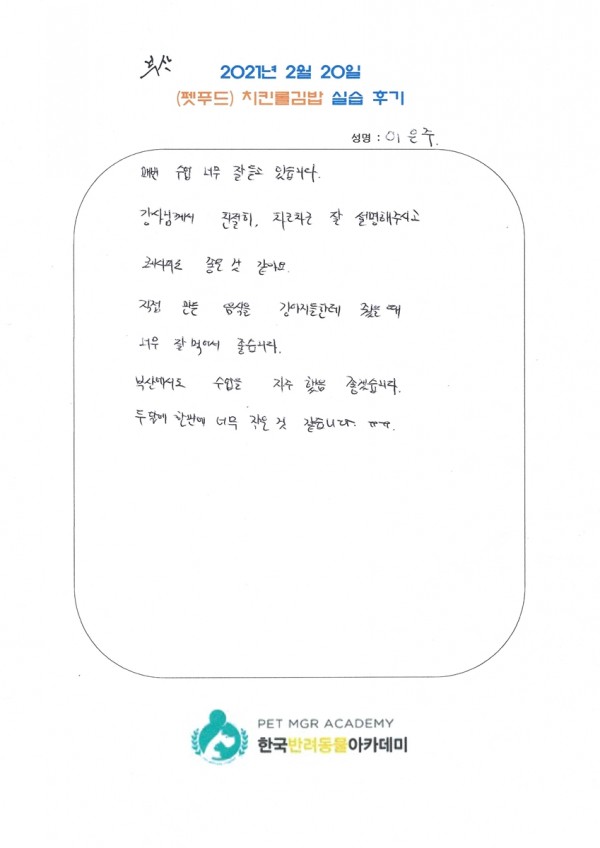 부산
2021년 2월 20일
(펫푸드) 치킨롤김밥 실습 후기
성명 : 이은주.
매번 수업 너무 잘듣고 있습니다.
강사님께서 친절히, 차근차근 잘 설명해주시고
좋은 것 같아요.
직접 만든 음식을 강아지들한테 줬을때
너무 잘 먹어서 좋습니다.
부산에서도 수업을 자주 했음 좋겠습니다.
두달에 한번에 너무 작은 것 같습니다. ㅠㅠ.
PET MGR ACADEMY
한국반려동물아카데미